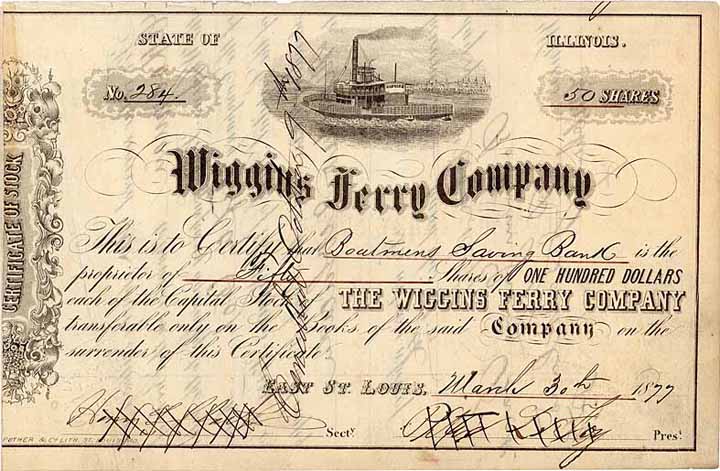 STATE OF ILLINOIS.
No. 284. 50 SHARES
Wiggins Ferry Company
This is to Certify that Boatmens Saving Bank is the
proprietor of Fifty Shares of ONE HUNDRED DOLLARS
each of the Capital Stock of THE WIGGINS FERRY COMPANY
transferable only on the Books of the said Company on the
surrender of this Certificate
EAST ST. LOUIS, March 30th 1877
Secty. Pres.t
CERTIFICATE OF STOCK
Cancelled 1877